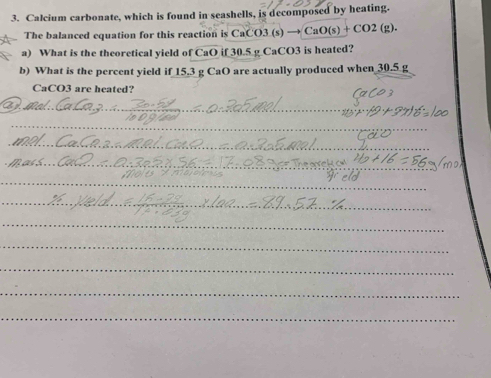 3. Calcium carbonate, which is found in seashells, is decomposed by heating.
The balanced equation for this reaction is CaCO3 (s) → CaO(s) + CO2 (g).
a) What is the theoretical yield of CaO if 30.5 g CaCO3 is heated?
b) What is the percent yield if 15.3 g CaO are actually produced when 30.5 g
CaCO3 are heated?
CaCO3
= 0.305 mol
=100
CaO
mol CaCO3 = mol CaO = 0.305 mol
mass CaO = 0.305 x 56 = 17.08 g = Theoretical yield
+16 = 56 g/mol
% yield = x100 = 89.57 %